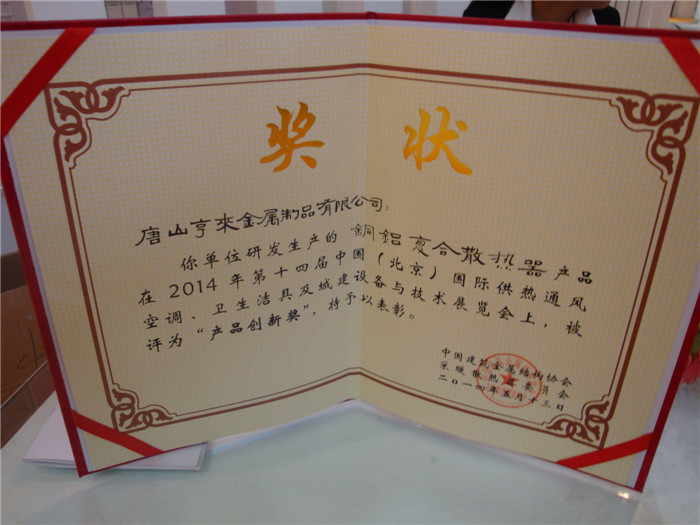 奖 状
唐山亨来金属制品有限公司：
你单位研发生产的 銅鋁复合散热器 产品
在 2014 年第十四届中国（北京）国际供热通风
空调、卫生洁具及城建设备与技术展览会上，被
评为“产品创新奖”，特予以表彰。
中国建筑金属结构协会
采暖散热器委员会
二〇一四年五月十三日